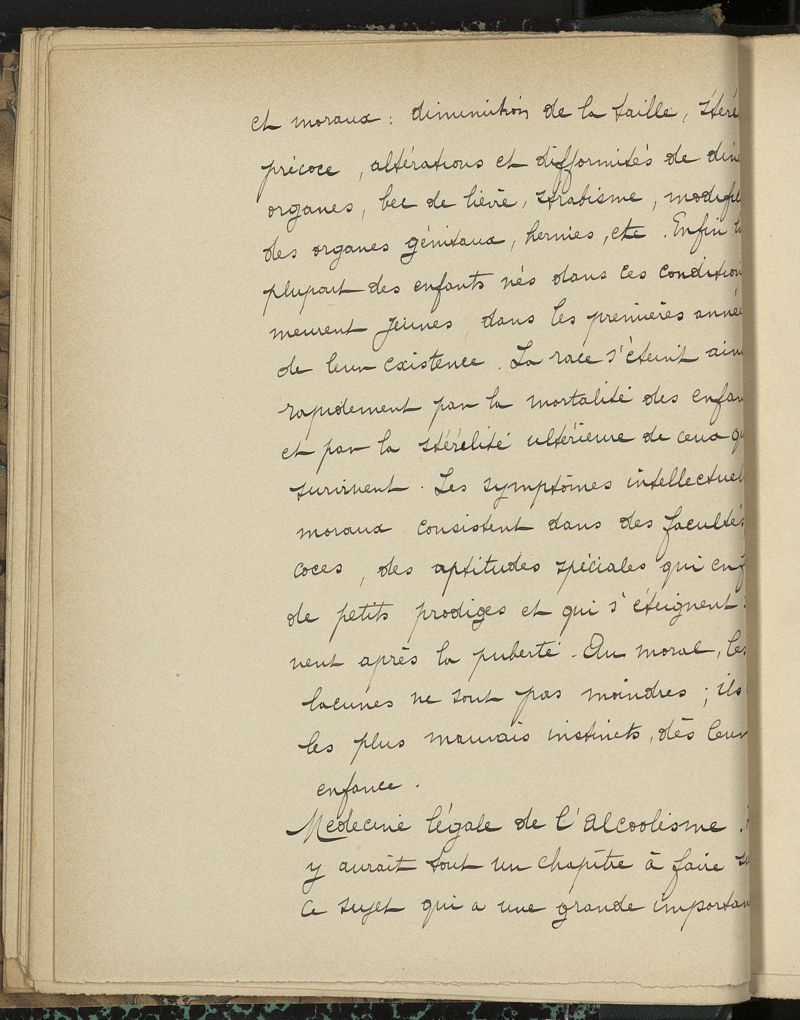 et moraux : diminution de la taille, stéré
précoce, altérations et difformités de dive
organes, bec de lièvre, strabisme, modifi
des organes génitaux, hernies, etc. Enfin l
plupart des enfants nés dans ces condition
meurent jeunes, dans les premières année
de leur existence. La race s'éteint ain
rapidement par la mortalité des enfan
et par la stérélité ultérieure de ceux q
survivent. Les symptômes intellectuel
moraux consistent dans des facultés
coces, des aptitudes spéciales qui en f
de petits prodiges et qui s'éteignent
nent après la puberté. Au moral, les
lacunes ne sont pas moindres ; ils
les plus mauvais instincts, dès leur
enfance.
Médecine légale de l'alcoolisme.
y aurait tout un chapître à faire su
ce sujet qui a une grande importan